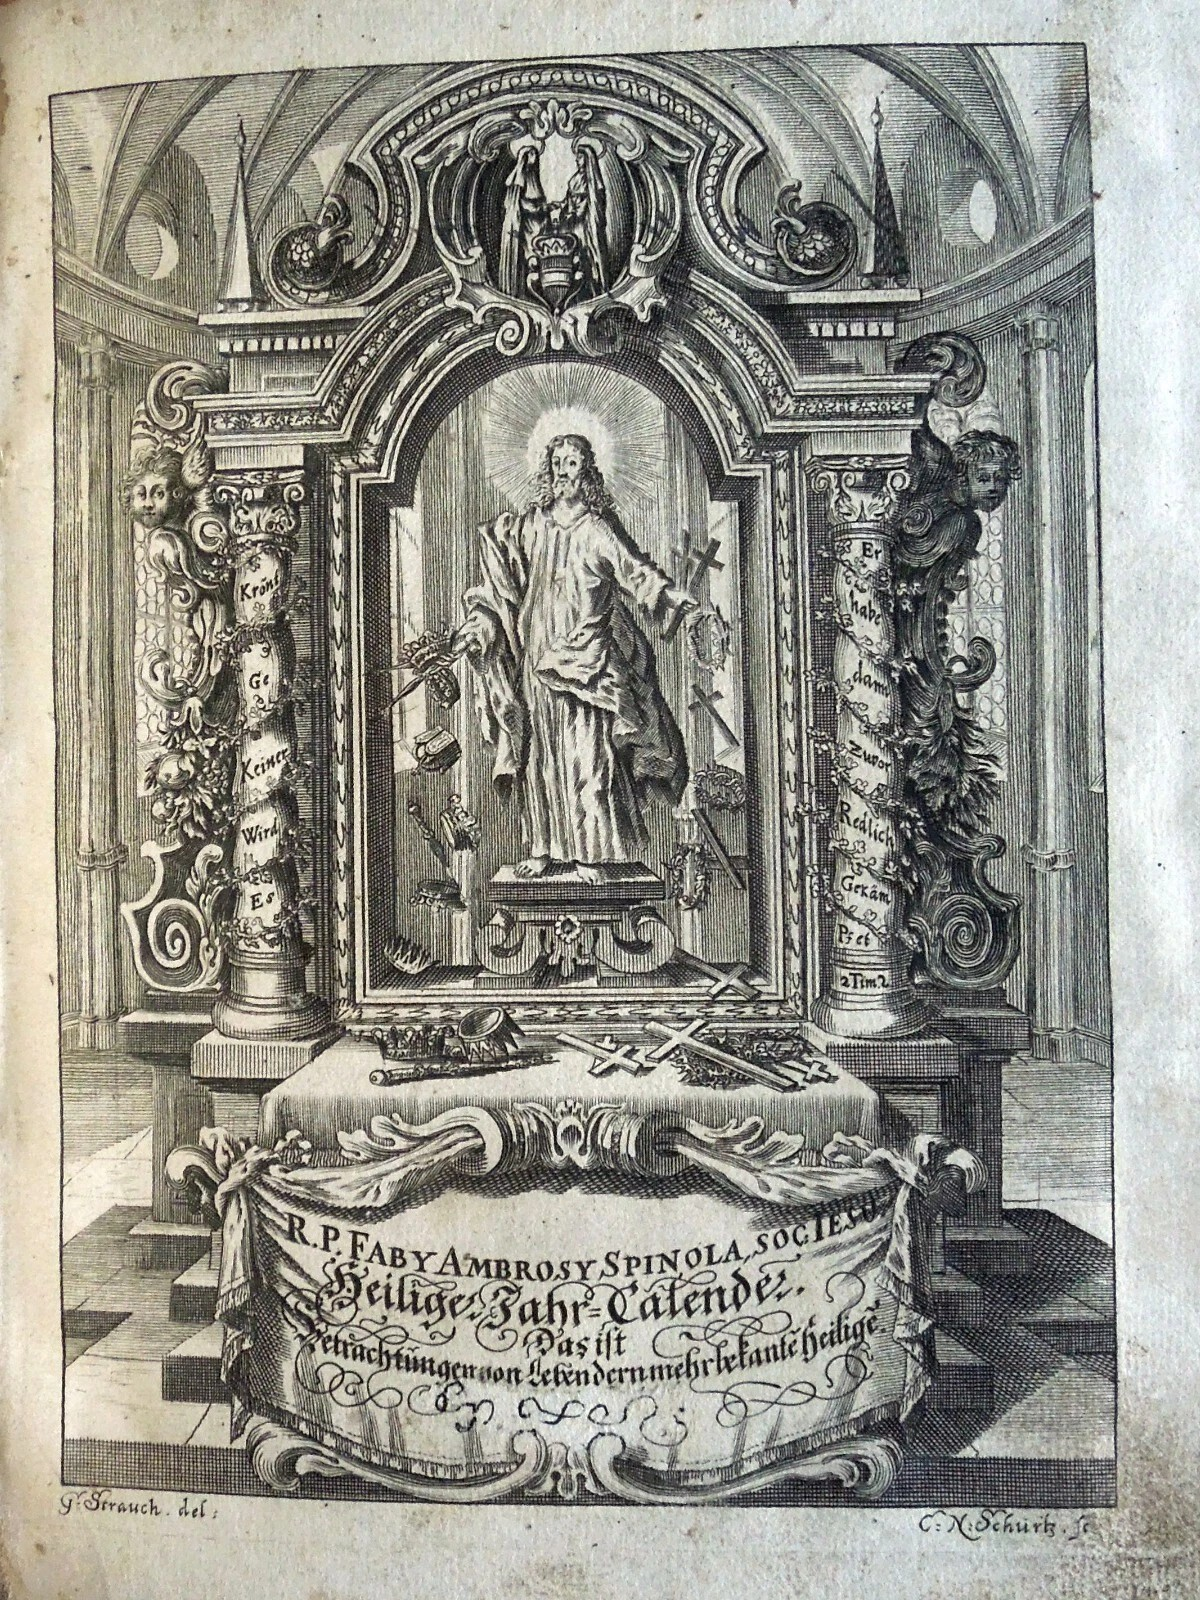 Krönt
Ge
Keiner
Wird
Es
Er
habe
dann
Zuvor
Redlich
Gekäm
Pfet
2 Tim. 2
R. P. FABY AMBROSY SPINOLA, SOC: IESU
Heiliger Jahr=Calender.
Das ist
Betrachtüngen von Leben dern mehr bekantē Heiligē
G. Strauch. del:
C: N: Schurtz. sc